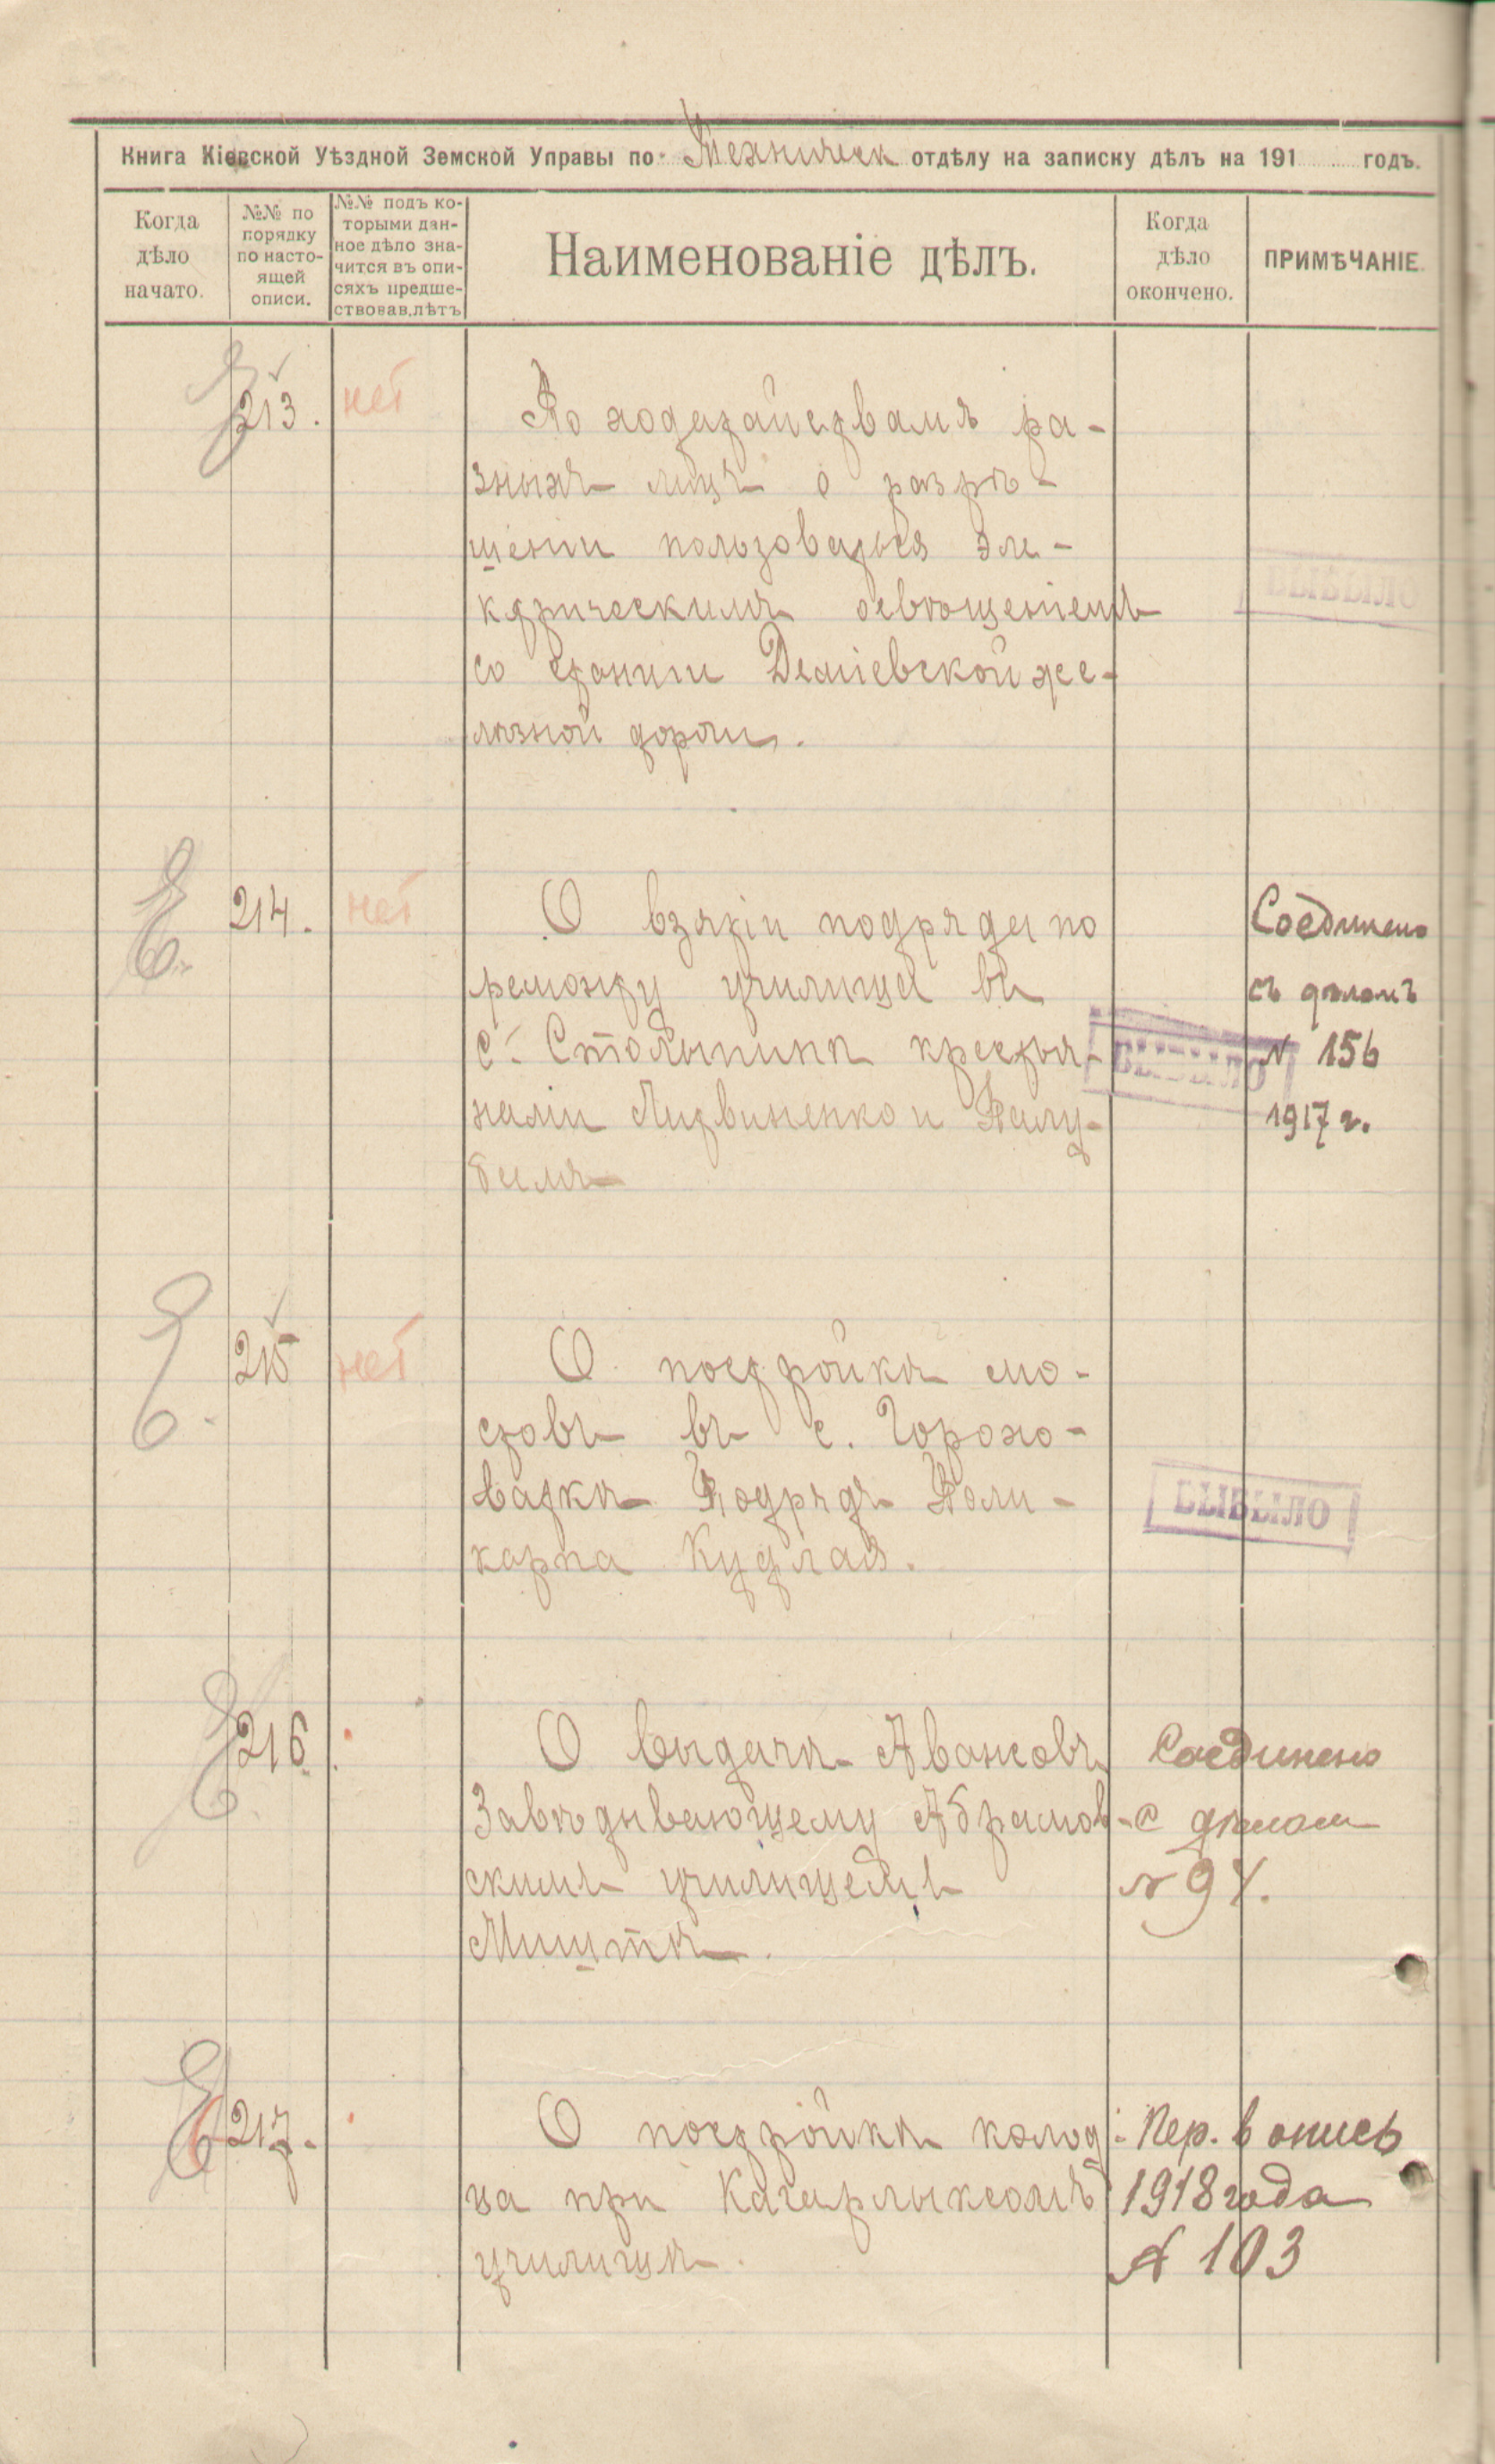 Книга Кіевской Уѣздной Земской Управы по Техническ отдѣлу на записку дѣлъ на 191 годъ.
Когда дѣло начато.
№№ по порядку по настоящей описи.
№№ подъ которыми данное дѣло значится въ описяхъ предшествовав. лѣтъ
Наименованіе дѣлъ.
Когда дѣло окончено.
ПРИМѢЧАНІЕ.
213. нет По ходатайствамъ ра-
зныхъ лицъ о разрѣ-
шеніи пользоваться эле-
ктрическимъ освѣщеніемъ
ВЫБЫЛО
со станціи Деміевской же-
лѣзной дороги.
214. нет О взятіи подряда по
ремонту училища въ
с. Столыпинѣ крестья-
нами Литвиненко и Палу-
бемъ
Соединено
съ дѣломъ
№ 156
1917 г.
ВЫБЫЛО
215 нет О постройкѣ мо-
стовъ въ с. Горохо-
ваткѣ Подрядъ Поли-
карпа Кудлая.
ВЫБЫЛО
216. О выдачѣ Авансовъ
Завѣдывающему Абрамов-
скимъ училищемъ
Соединено
с дѣлом
217. О постройкѣ колод-
ца при Кагарлыкскомъ
училищѣ.
Пер. в опись
1918 года
№ 103